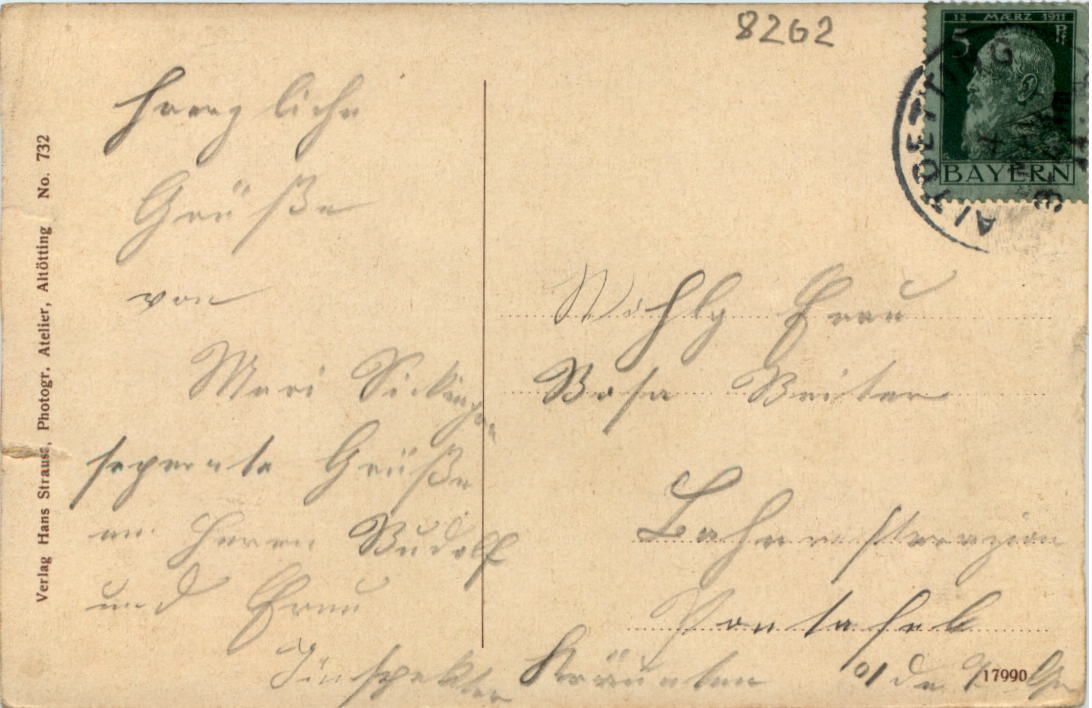 8262
12 MÆRZ 1911
5 Pf
BAYERN
ALTOETTING
Verlag Hans Strauss, Photogr. Atelier, Altötting No. 732
Herzliche
Grüße
von
Mari
seperate Grüße
an Herrn Rudolf
und Frau
Inspekter
Wohlg Frau
Rosa Reiter
Pontafel
Kärnten
17990